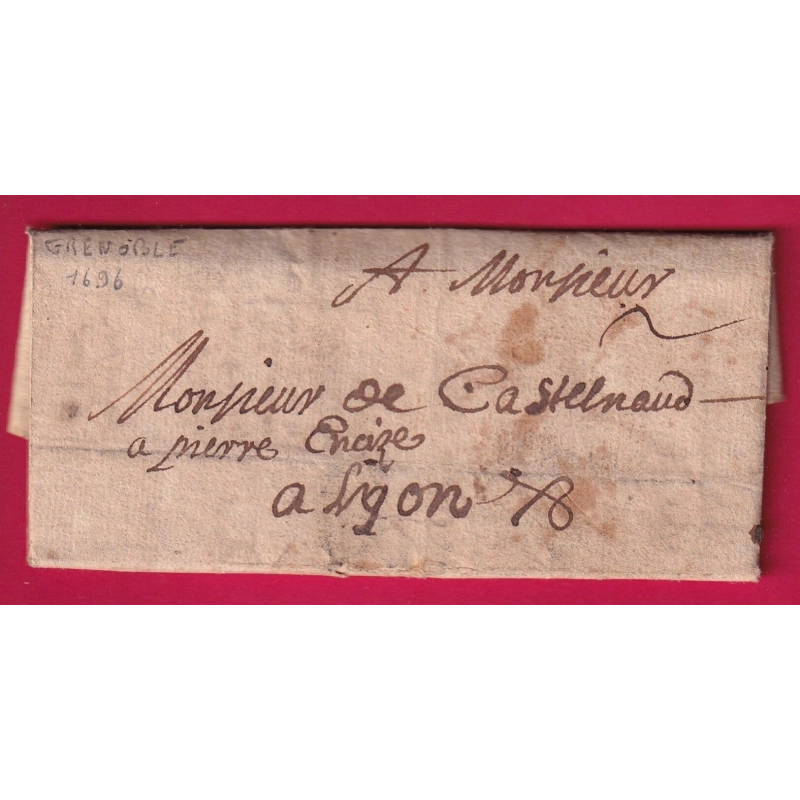 GRENOBLE
1696
A Monsieur
Monsieur de Castelnaud
a pierre Encize
a Lyon